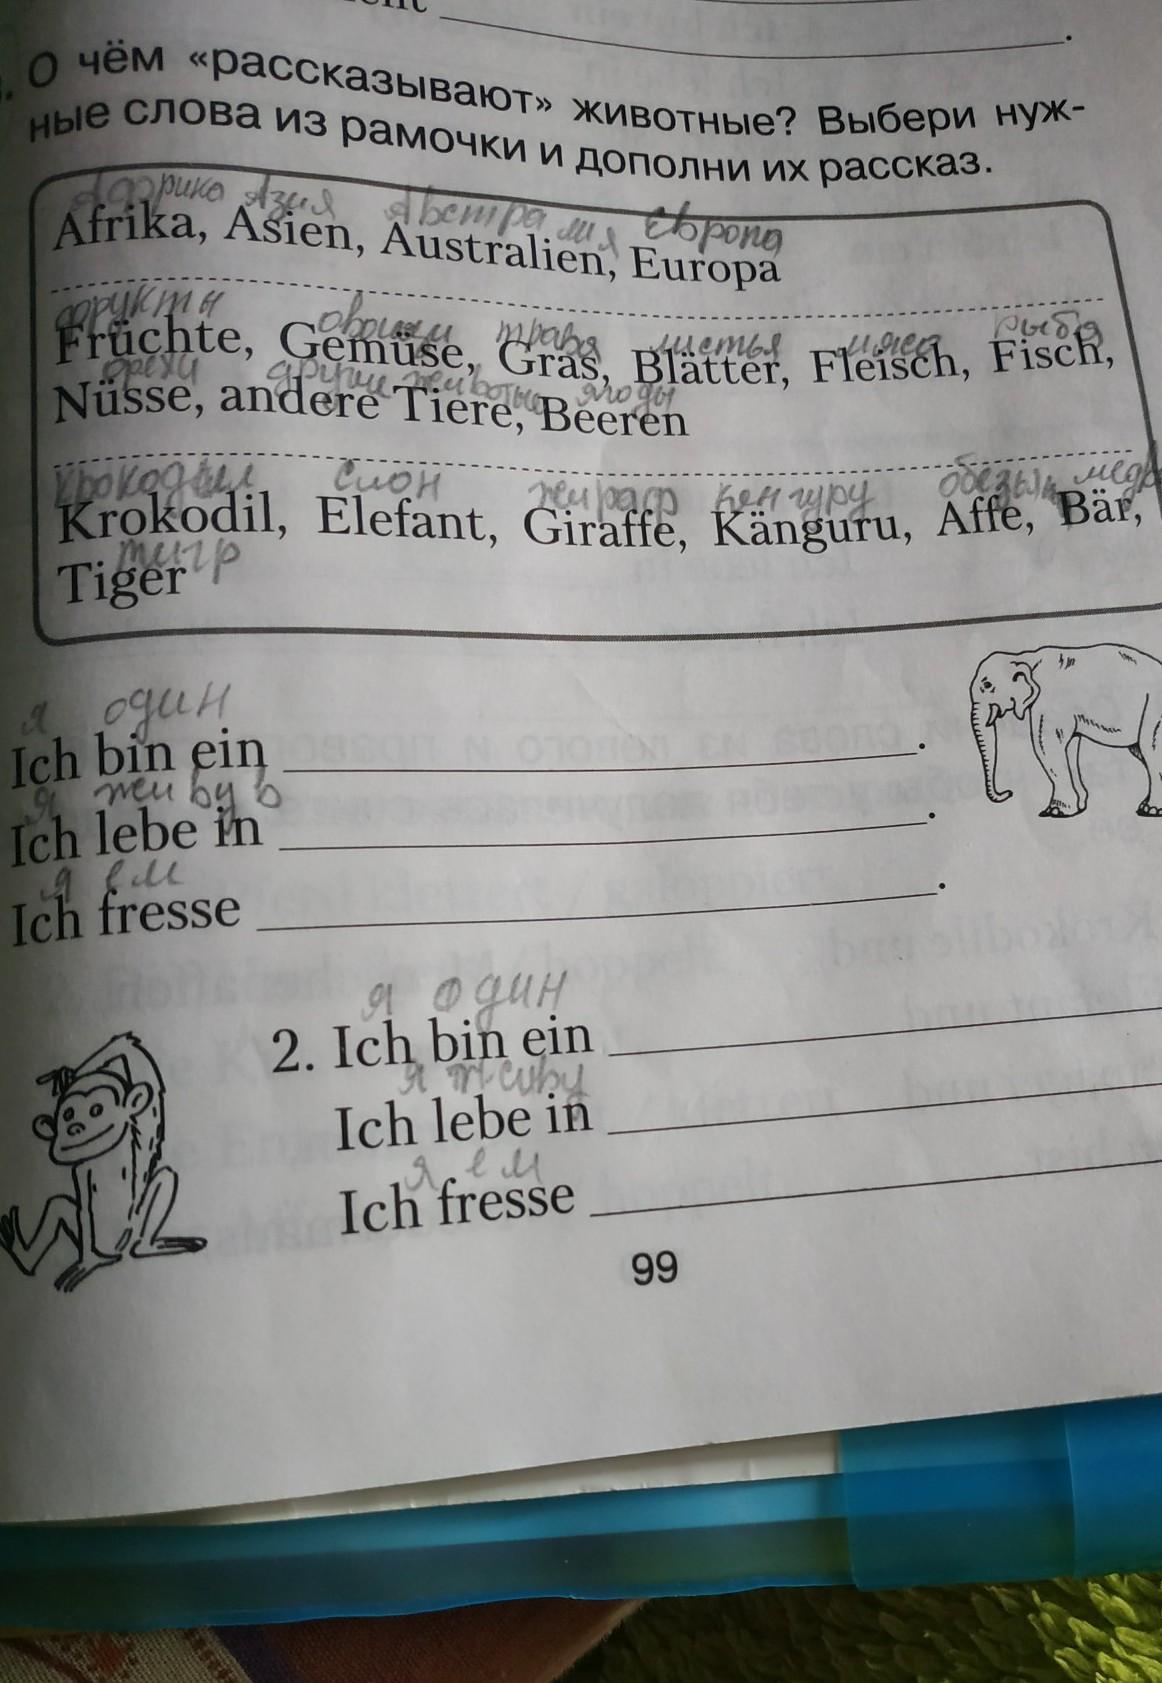 О чём «рассказывают» животные? Выбери нуж-
ные слова из рамочки и дополни их рассказ.
Африка Азия Австралия Европа
Afrika, Asien, Australien, Europa
фрукты овощи трава листья мясо рыба
Früchte, Gemüse, Gras, Blätter, Fleisch, Fisch,
орехи другие животные ягоды
Nüsse, andere Tiere, Beeren
крокодил слон жираф кенгуру
Krokodil, Elefant, Giraffe, Känguru, Affe, Bär,
тигр
Tiger
я один
Ich bin ein .
я живу в
Ich lebe in .
я ем
Ich fresse .
я один
2. Ich bin ein
я живу
Ich lebe in
я ем
Ich fresse
99